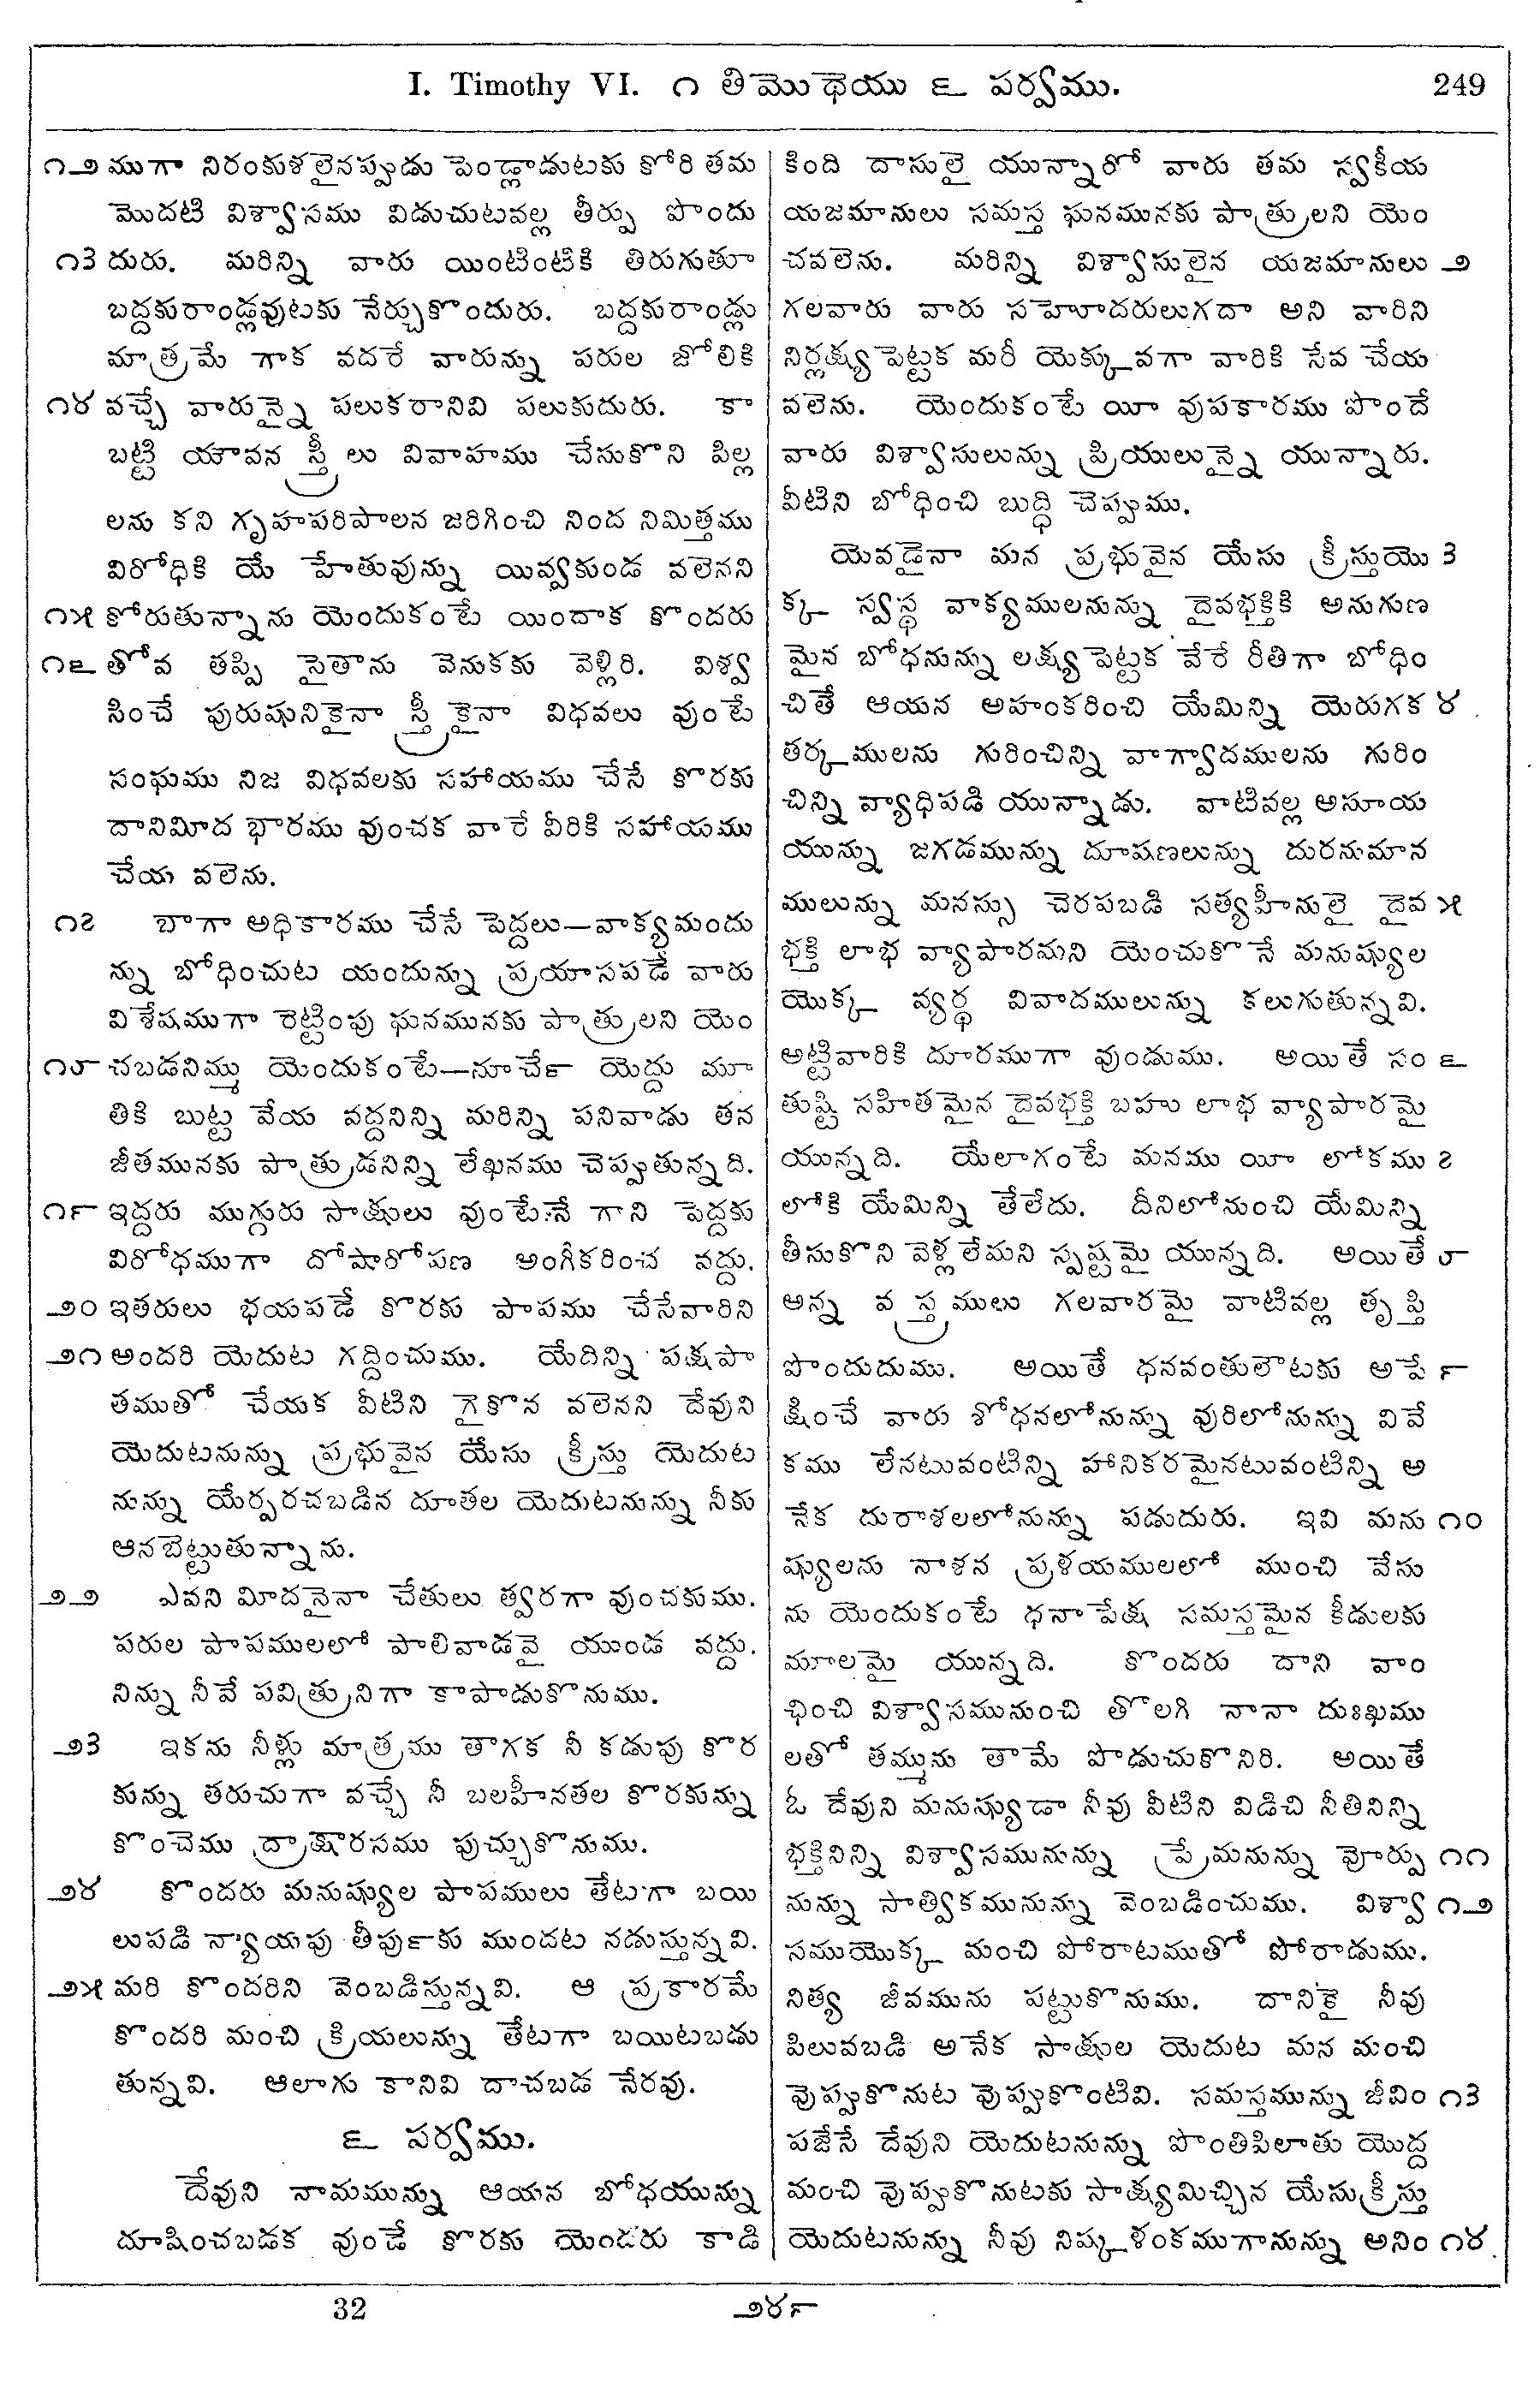 I. Timothy VI. ౧ తిమొథెయు ౬ పర్వము. 249
౧౨ ముగా నిరంకుశలైనప్పుడు పెండ్లాడుటకు కోరి తమ
మొదటి విశ్వాసము విడుచుటవల్ల తీర్పు పొందు
౧౩ దురు. మరిన్ని వారు యింటింటికి తిరుగుతూ
బద్దకురాండ్లవుటకు నేర్చుకొందురు. బద్దకురాండ్లు
మాత్రమే గాక వదరే వారున్ను పరుల జోలికి
౧౪ వచ్చే వారున్నై పలుకరానివి పలుకుదురు. కా
బట్టి యౌవన స్త్రీలు వివాహము చేసుకొని పిల్ల
లను కని గృహపరిపాలన జరిగించి నింద నిమిత్తము
విరోధికి యే హేతువున్ను యివ్వకుండ వలెనని
౧౫ కోరుతున్నాను యెందుకంటే యిందాక కొందరు
౧౬ తోవ తప్పి సైతాను వెనుకకు వెళ్లిరి. విశ్వ
సించే పురుషునికైనా స్త్రీకైనా విధవలు వుంటే
సంఘము నిజ విధవలకు సహాయము చేసే కొరకు
దానిమీద భారము వుంచక వారే వీరికి సహాయము
చేయ వలెను.
౧౭ బాగా అధికారము చేసే పెద్దలు—వాక్యమందు
న్ను బోధించుట యందున్ను ప్రయాసపడే వారు
విశేషముగా రెట్టింపు ఘనమునకు పాత్రులని యెం
౧౮ చబడనిమ్ము యెందుకంటే—నూచేఁ యెద్దు మూ
తికి బుట్ట వేయ వద్దనిన్ని మరిన్ని పనివాడు తన
జీతమునకు పాత్రుడనిన్ని లేఖనము చెప్పుతున్నది.
౧౯ ఇద్దరు ముగ్గురు సాక్షులు వుంటేనే గాని పెద్దకు
విరోధముగా దోషారోపణ అంగీకరించ వద్దు.
౨౦ ఇతరులు భయపడే కొరకు పాపము చేసేవారిని
౨౧ అందరి యెదుట గద్దించుము. యేదిన్ని పక్షపా
తముతో చేయక వీటిని గైకొన వలెనని దేవుని
యెదుటనున్ను ప్రభువైన యేసు క్రీస్తు యెదుట
నున్ను యేర్పరచబడిన దూతల యెదుటనున్ను నీకు
ఆనబెట్టుతున్నాను.
౨౨ ఎవని మీదనైనా చేతులు త్వరగా వుంచకుము.
పరుల పాపములలో పాలివాడవై యుండ వద్దు.
నిన్ను నీవే పవిత్రునిగా కాపాడుకొనుము.
౨౩ ఇకను నీళ్లు మాత్రము తాగక నీ కడుపు కొర
కున్ను తరుచుగా వచ్చే నీ బలహీనతల కొరకున్ను
కొంచెము ద్రాక్షారసము పుచ్చుకొనుము.
౨౪ కొందరు మనుష్యుల పాపములు తేటగా బయి
లుపడి న్యాయపు తీపుకాు ముందట నడుస్తున్నవి.
౨౫ మరి కొందరిని వెంబడిస్తున్నవి. ఆ ప్రకారమే
కొందరి మంచి క్రియలున్ను తేటగా బయిటబడు
తున్నవి. ఆలాగు కానివి దాచబడ నేరవు.
౬ పర్వము.
దేవుని నామమున్ను ఆయన బోధయున్ను
దూషించబడక వుండే కొరకు యెందరు కాడి
కింది దాసులై యున్నారో వారు తమ స్వకీయ
యజమానులు సమస్త ఘనమునకు పాత్రులని యెం
చవలెను. మరిన్ని విశ్వాసులైన యజమానులు ౨
గలవారు వారు సహోదరులుగదా అని వారిని
నిర్లక్ష్యపెట్టక మరీ యెక్కువగా వారికి సేవ చేయ
వలెను. యెందుకంటే యీ వుపకారము పొందే
వారు విశ్వాసులున్ను ప్రియులున్నై యున్నారు.
వీటిని బోధించి బుద్ధి చెప్పుము.
యెవడైనా మన ప్రభువైన యేసు క్రీస్తుయొ ౩
క్క స్వస్థ వాక్యములనున్ను దైవభక్తికి అనుగుణ
మైన బోధనున్ను లక్ష్యపెట్టక వేరే రీతిగా బోధిం
చితే ఆయన అహంకరించి యేమిన్ని యెరుగక ౪
తర్కములను గురించిన్ని వాగ్వాదములను గురిం
చిన్ని వ్యాధిపడి యున్నాడు. వాటివల్ల అసూయ
యున్ను జగడమున్ను దూషణలున్ను దురనుమాన
ములున్ను మనస్సు చెరపబడి సత్యహీనులై దైవ ౫
భక్తి లాభ వ్యాపారమని యెంచుకొనే మనుష్యుల
యొక్క వ్యర్థ వివాదములున్ను కలుగుతున్నవి.
అట్టివారికి దూరముగా వుండుము. అయితే సం ౬
తుష్టి సహితమైన దైవభక్తి బహు లాభ వ్యాపారమై
యున్నది. యేలాగంటే మనము యీ లోకము ౭
లోకి యేమిన్ని తేలేదు. దీనిలోనుంచి యేమిన్ని
తీసుకొని వెళ్లలేమని స్పష్టమై యున్నది. అయితే ౮
అన్న వస్త్రములు గలవారమై వాటివల్ల తృప్తి
పొందుదుము. అయితే ధనవంతులౌటకు అపే ౯
క్షించే వారు శోధనలోనున్ను వురిలోనున్ను వివే
కము లేనటువంటిన్ని హానికరమైనటువంటిన్ని అ
నేక దురాశలలోనున్ను పడుదురు. ఇవి మను ౧౦
ష్యులను నాశన ప్రళయములలో ముంచి వేసు
ను యెందుకంటే ధనాపేక్ష సమస్తమైన కీడులకు
మూలమై యున్నది. కొందరు దాని వాం
ఛించి విశ్వాసమునుంచి తొలగి నానా దుఃఖము
లతో తమ్మును తామే పొడుచుకొనిరి. అయితే
ఓ దేవుని మనుష్యుడా నీవు వీటిని విడిచి నీతినిన్ని
భక్తినిన్ని విశ్వాసమునున్ను ప్రేమనున్ను వోర్పు ౧౧
నున్ను సాత్వికమునున్ను వెంబడించుము. విశ్వా ౧౨
సముయొక్క మంచి పోరాటముతో పోరాడుము.
నిత్య జీవమును పట్టుకొనుము. దానికై నీవు
పిలువబడి అనేక సాక్షుల యెదుట మన మంచి
వొప్పుకొనుట వొప్పుకొంటివి. సమస్తమున్ను జీవిం ౧౩
పజేసే దేవుని యెదుటనున్ను పొంతిపిలాతు యొద్ద
మంచి వొప్పుకొనుటకు సాక్ష్యమిచ్చిన యేసుక్రీస్తు
యెదుటనున్ను నీవు నిష్కళంకముగానున్ను అనిం ౧౪
32 ౨౪౯